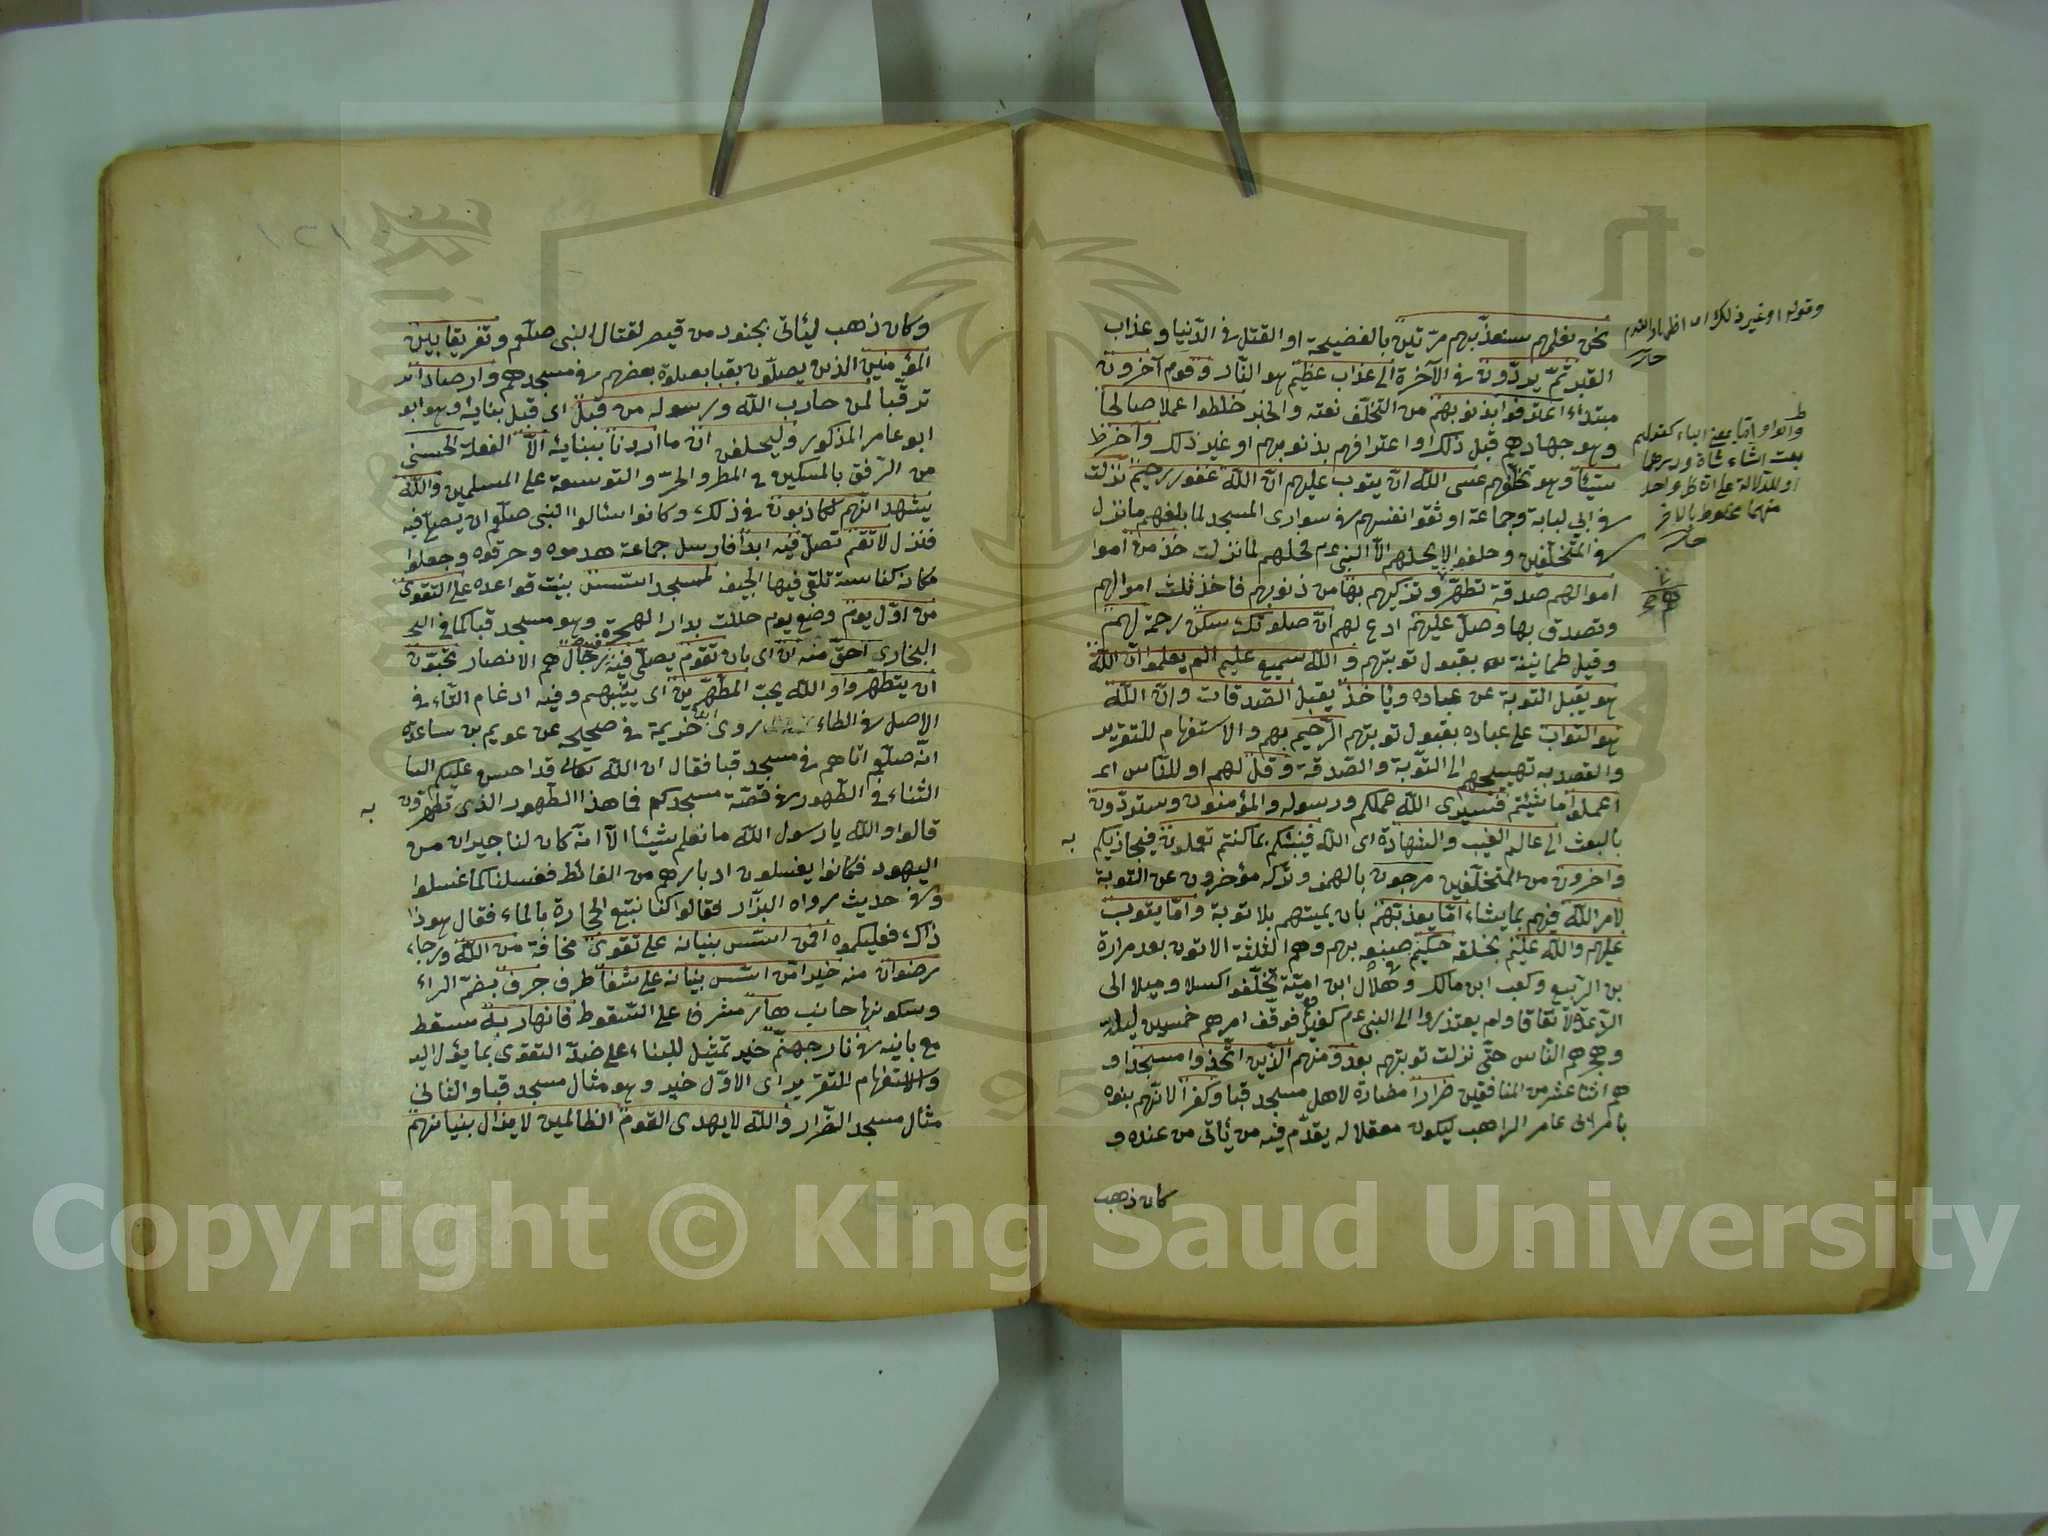 وقوله او غير ذلك اى اظهار الندم
نحن نعلمهم سنعذبهم مرّتين بالفضيحة او القتل فى الدّنيا وعذاب
القبر ثمّ يردّون فى الآخرة الى عذاب عظيم هو النّار وقوم آخرون
مبتداء اعترفوا بذنوبهم من التخلّف نعته والخبر خلطوا عملا صالحا
وهو جهادهم قبل ذلك او اعترافهم بذنوبهم او غير ذلك وآخر
سيّئا وهو تخلّفهم عسى الله ان يتوب عليهم ان الله غفور رحيم نزلت
فى ابى لبابة وجماعة اوثقوا انفسهم فى سوارى المسجد لما بلغهم ما نزل
فى المتخلّفين وحلفوا لا يحلهم الّا النبى عم فحلهم لما نزلت خذ من اموا
اموالهم صدقة تطهّرهم وتزكيهم بها من ذنوبهم فاخذ ثلث اموالهم
وتصدق بها وصلّ عليهم ادع لهم انّ صلوتك سكن رحمة لهم
وقيل طمانينة بقبول توبتهم والله سميع عليم الم يعلموا انّ الله
هو يقبل التوبة عن عباده ويأخذ يقبل الصّدقات وانّ الله
هو التواب على عباده بقبول توبتهم الرّحيم بهم والاستفهام للتقرير
والقصد به تهييجهم الى التّوبة والصّدقة وقل لهم او للنّاس
اعملوا ما شئتم فسيرى الله عملكم ورسوله والمؤمنون وستردّون
بالبعث الى عالم الغيب والشّهادة اى الله فينبّئكم بما كنتم تعملون فيجازيكم
وآخرون من المتخلّفين مرجون بالهمز وتركه مؤخرون عن التوبة
لامر الله فيهم بما يشاء امّا يعذبهم بان يميتهم بلا توبة وامّا يتوب
عليهم والله عليم بخلقه حكيم فى صنعه بهم وهم الثلثة الاتون بعد مرارة
بن الرّبيع وكعب ابن مالك وهلال ابن اميّة تخلّفوا كسلا وميلا الى
الدّعة لا نفاقا ولم يعتذروا الى النبى عم كغيرهم فوقف امرهم خمسين ليلة
وهجرهم النّاس حتّى نزلت توبتهم بعد ومنهم الّذين اتّخذوا مسجدا و
هم اثنا عشر من المنافقين ضرارا مضارة لاهل مسجد قبا وكفرا لانّهم بنوه
بامر ابى عامر الراهب ليكون معقلا له يقدم فيه من يأتى من عنده و
كان ذهب
وكان ذهب ليأتى بجنود من قيصر لقتال النبى صلّعم وتفريقا بين
المؤمنين الذين يصلّون بقبا بصلوة بعضهم فى مسجدهم وارصادا
ترقّبا لمن حارب الله ورسوله من قبل اى قبل بنايه وهو ابو
ابو عامر المذكور وليحلفن ان ما اردنا ببنايه الّا الفعلة الحسنى
من الرّفق بالمسكين فى المطر والحرّ والتوسعة على المسلمين والله
يشهد انّهم لكاذبون فى ذلك وكانوا سئالوا النبى صلّعم ان يصلّى فيه
فنزل لا تقم تصلّ فيه ابدا فارسل جماعة هدموه وحرقوه وجعلوا
مكانه كناسة تلقى فيها الجيف لمسجد اسّس بنيت قواعده على التقوى
من اوّل يوم وضع يوم حللت بدار الهجرة وهو مسجد قبا كما فى البخ
البخارى احقّ منه ان اى بان تقوم تصلّى فيه فيه رجال هم الانصار يحبّون
ان يتطهّروا والله يحبّ المطّهّرين اى يثيبهم وفيه ادغام التّاء فى
الاصل فى الطاء روى ابن خزيمة فى صحيحه عن عويم بن ساعدة
انّه صلّعم اتاهم فى مسجد قبا فقال ان الله تعالى قد احسن عليكم الثنا
الثناء فى الطّهور فى قصّة مسجدكم فما هذا الطّهور الذى تطهرون به
قالوا والله يا رسول الله ما نعلم شيئا الّا انّه كان لنا جيران من
اليهود فكانوا يغسلون ادبارهم من الغائط فغسلنا كما غسلوا
وفى حديث رواه البزّار فقالوا كنا نتبع الحجارة بالماء فقال هو ذا
ذاك فعليكموه افمن اسّس بنيانه على تقوى مخافة من الله ورجاء
رضوان منه خير امّن اسّس بنيانه على شفا طرف جرف بضمّ الراء
وسكونها جانب هار مشرف على السّقوط فانهار به سقط
مع بانيه فى نار جهنّم خير تمثيل للبناء على ضدّ التقوى بما يؤل اليه
والاستفهام للتقرير اى الاوّل خير وهو مثال مسجد قبا والثانى
مثال مسجد الضّرار والله لا يهدى القوم الظالمين لا يزال بنيانهم
Copyright © King Saud University